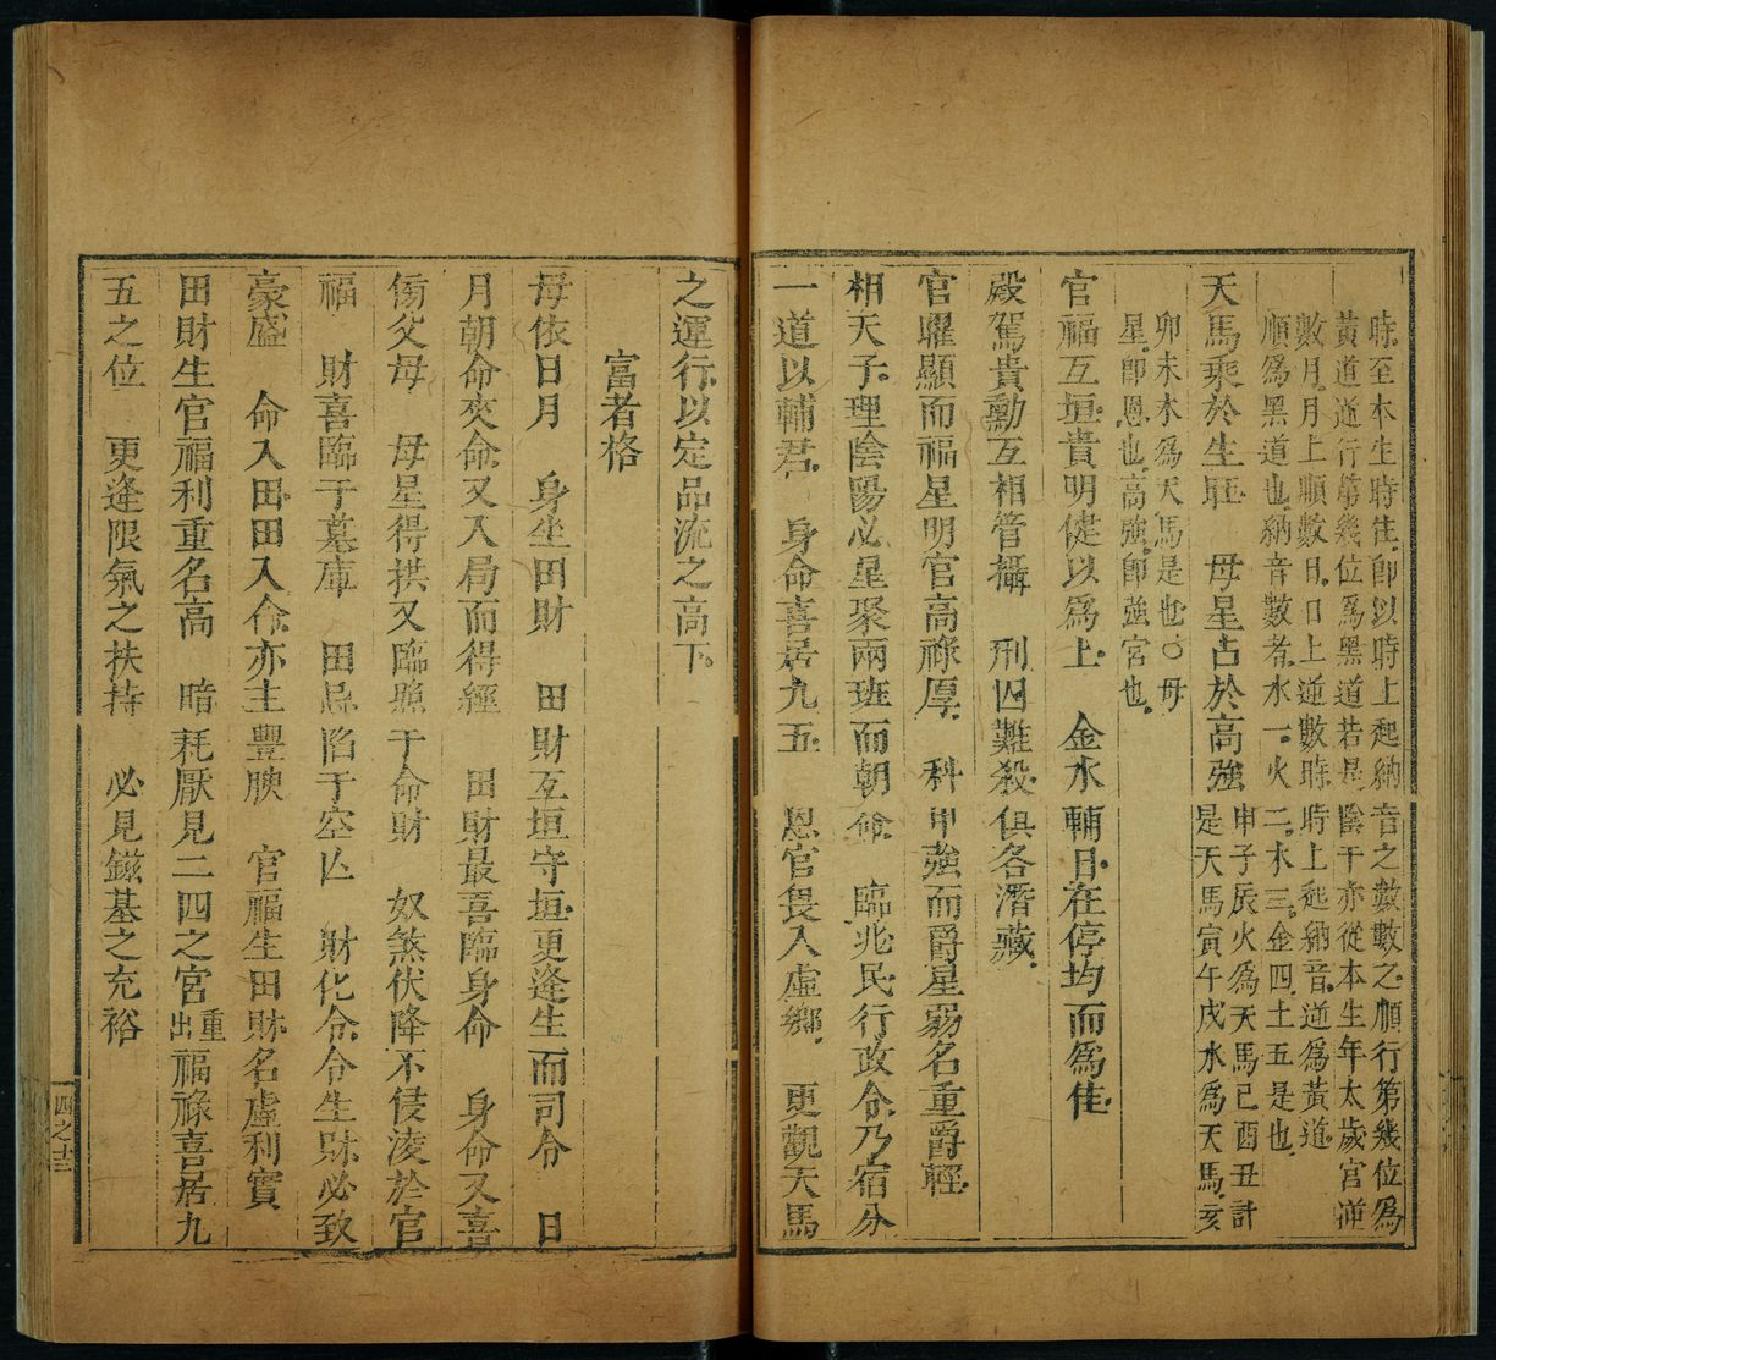 時至本生時住即以時上起納音之數數之順行第幾位為
黃道逆行第幾位為黑道若是陰干亦從本生年太歲宮逆
數月月上順數日日上逆數時時上起納音逆為黃道
順為黑道也納音數者水一火二木三金四土五是也
天馬乘於生旺　母星占於高強申子辰火為天馬巳酉丑計
是天馬寅午戌水為天馬亥
卯未木為天馬是也○母
星即恩也高強即強宮也
官福互垣貴明健以為上　金水輔日在停均而為佳
殿駕貴勳互相管攝　刑囚難殺俱各潛藏
官曜顯而福星明官高祿厚　科甲強而爵星弱名重爵輕
相天子理陰陽必星聚兩班而朝命　臨兆民行政令乃宿分
一道以輔君　身命喜居九五　恩官畏入虛鄉　更觀天馬
之運行以定品流之高下
富者格
母依日月　身坐田財　田財互垣守垣更逢生而司令　日
月朝命夾命又入局而得經　田財最喜臨身命　身命又喜
傍父母　母星得拱又臨照于命財　奴煞伏降不侵淩於官
福　財喜臨于墓庫　田忌陷于空亾　財化令令生財必致
豪盛　命入田田入命亦主豐腴　官福生田財名虛利實
田財生官福利重名高　暗耗厭見二四之宮重出福祿喜居九
五之位　更逢限氣之扶持　必見鎡基之充裕
四之十三